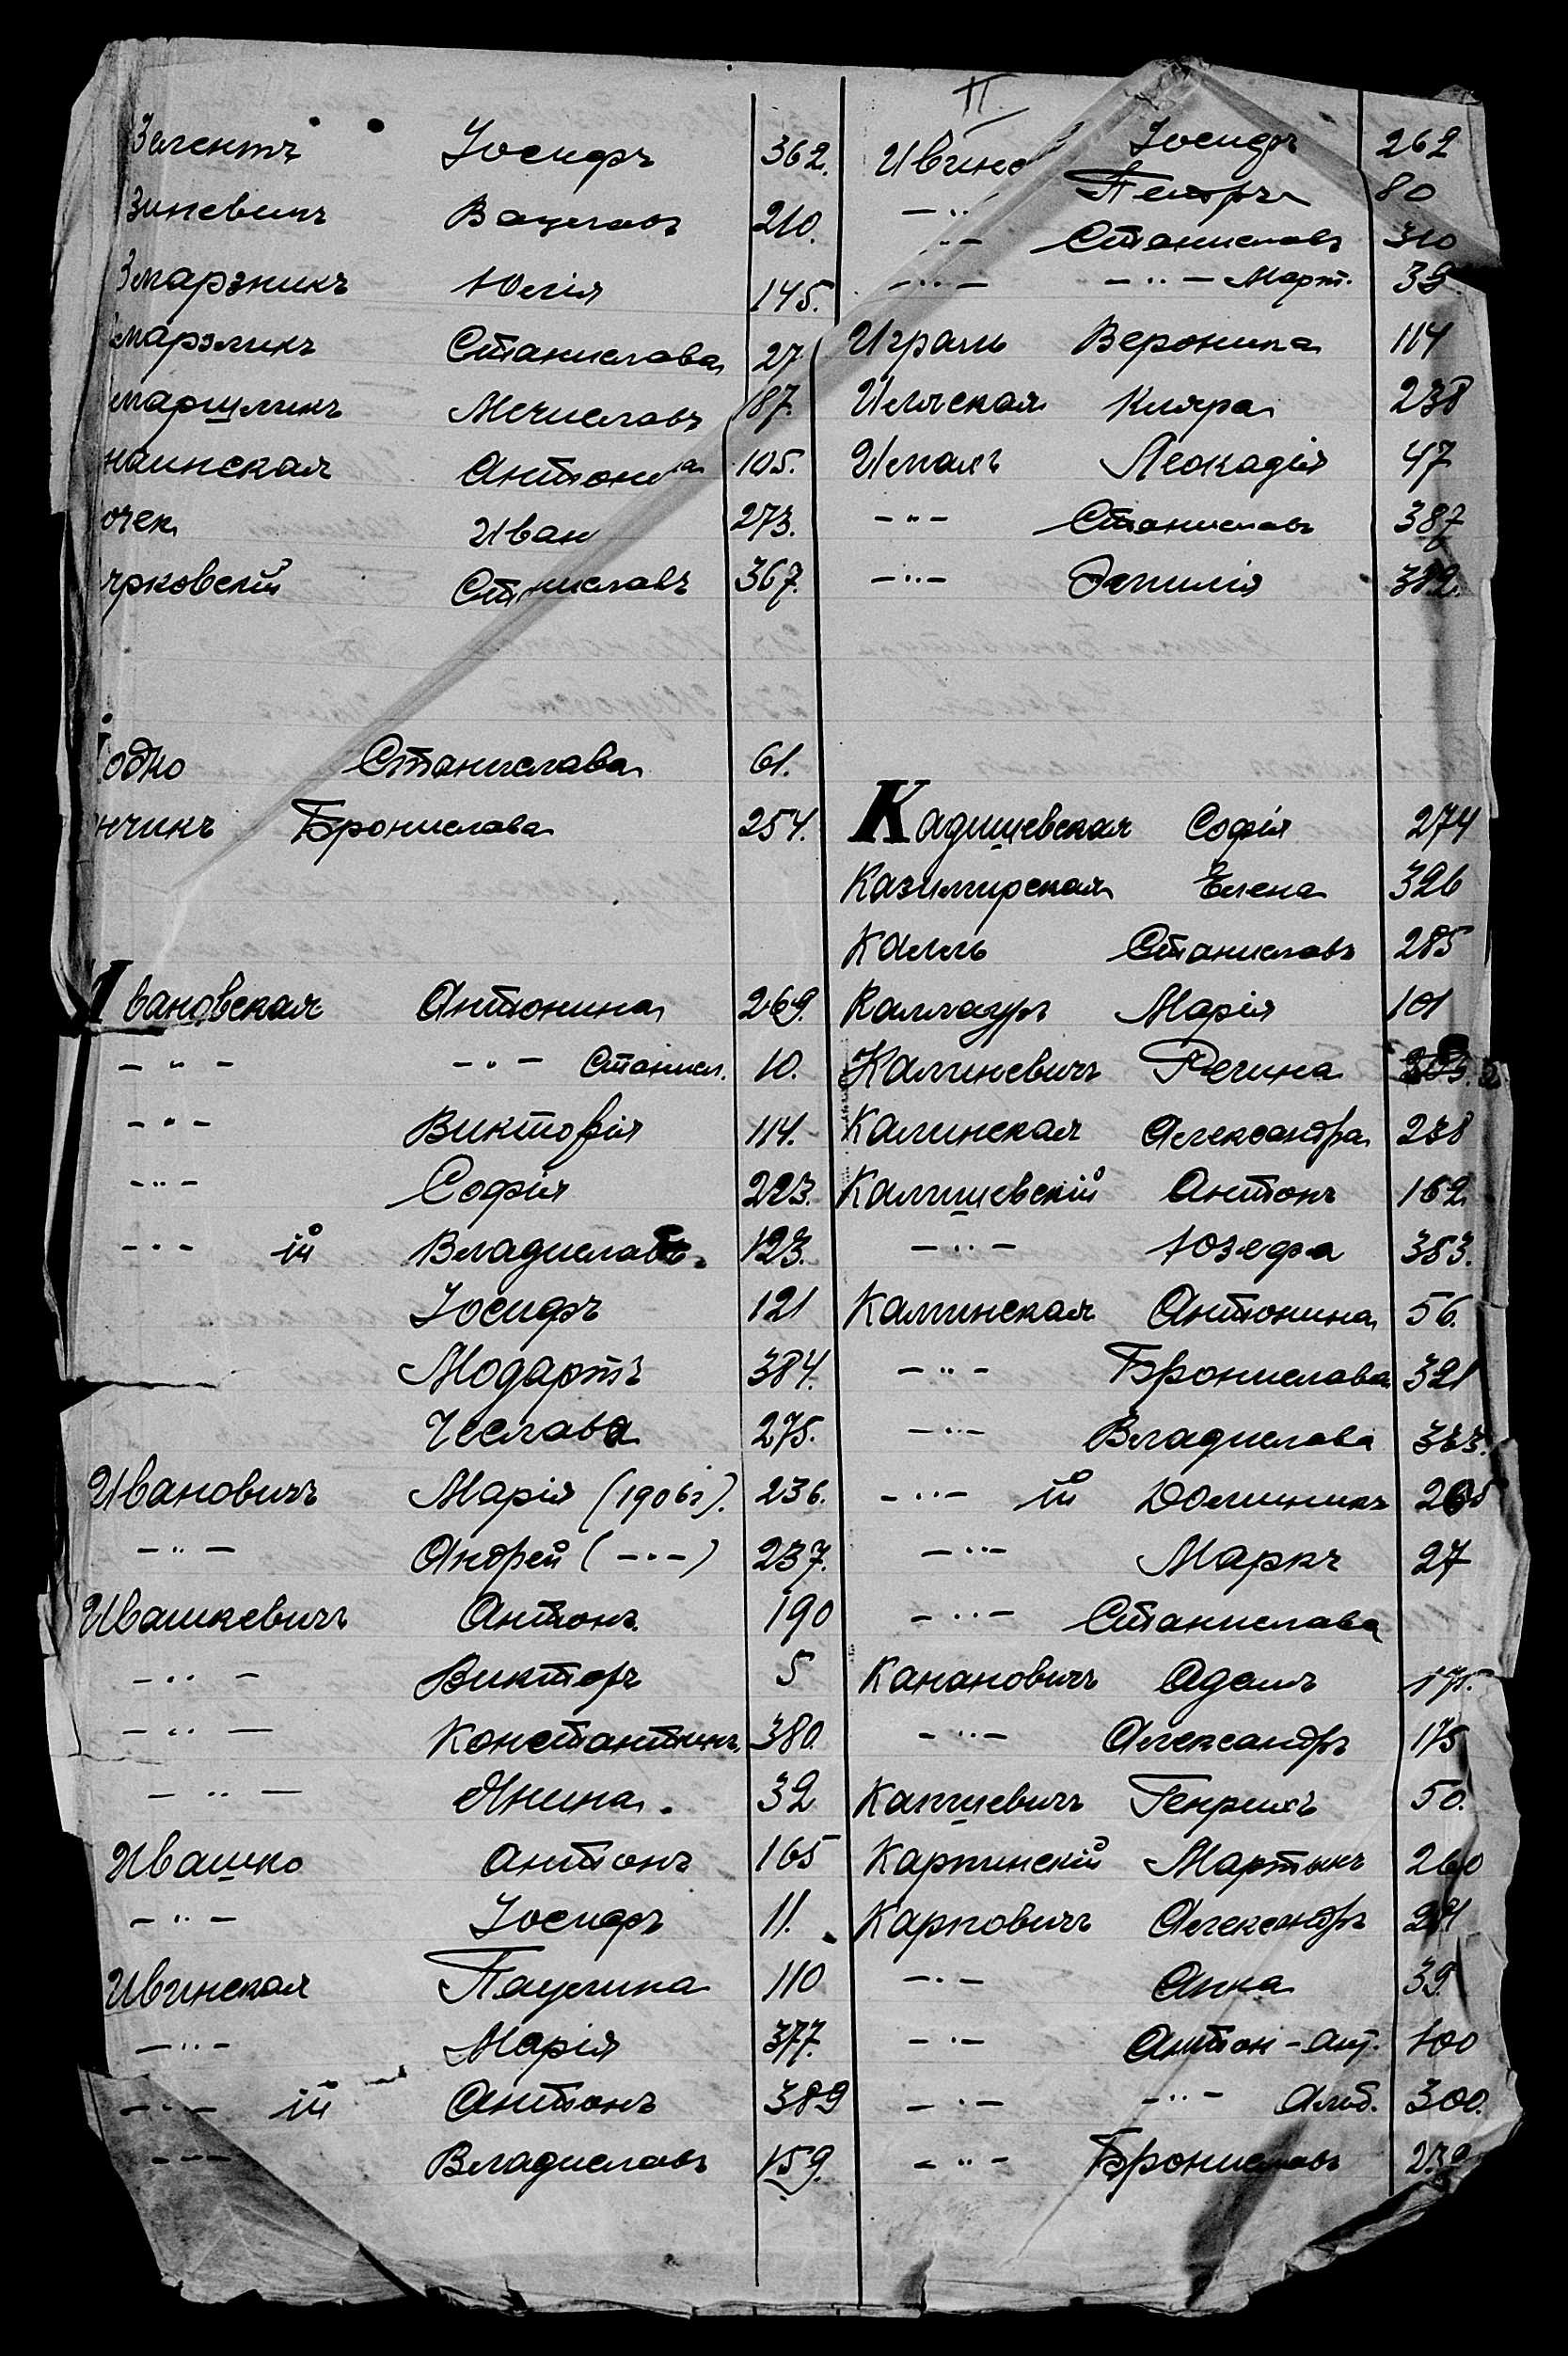 Зелентъ Іосифъ 362.
Зиневичъ Вацлавъ 210.
Змарзникъ Юлія 145.
марзликъ Станислава 27
марщликъ Мечиславъ 187.
наинская Антонина 105.
очек Иван 273.
урковскій Станиславъ 367.
одко Станислава 61.
нчикъ Бронислава 254.
Ивановская Антонина 269.
-"- -"- Станисл. 10.
-"- Викторія 114.
-"- Софія 223.
-"- ій Владиславъ. 123.
Іосифъ 121
Модартъ 384.
Чеслава 275.
Ивановичъ Марія (1906г). 236.
-"- Андрей (-"-) 237.
Ивашкевичъ Антонъ. 190
-"- Викторъ 5
-"- Константинъ. 380.
-"- Янина. 32
Ивашко Антонъ 165
-"- Іосифъ 11.
Ивинская Паулина 110
-"- Марія 377.
-"- ій Антонъ 389
-"- Владиславъ 159.
II.
Ивинс Іосифъ 262
-"- Петръ 80
-"- Станиславъ 310
-"- -"- Март.
Играль Вероника 114
Илляская Клара 238
Леокадія 47
-"- Станиславъ 387
-"- Эмилія 382.
Кадишевская Софія 274
Казимирская Елена 326
Калль Станиславъ 285
Каллауръ Марія 101
Калиневичъ Регина
Калинская Александра 238
Калишевскій Антонъ 162.
-"- Юзефа 383.
Калинская Антонина 56.
-"- Бронислава 321
-"- Владислава
-"- ій Доминикъ
-"- Маркъ 27
-"- Станислава
Канановичъ Адамъ 171.
-"- Александръ 175
Капшевичъ Генрихъ 50.
Карпинскій Мартынъ 260
Карповичъ Александръ
-"- Анна 39.
-"- Антон - Ант. 100
-"- -"- Альб. 300.
-"- Брониславъ